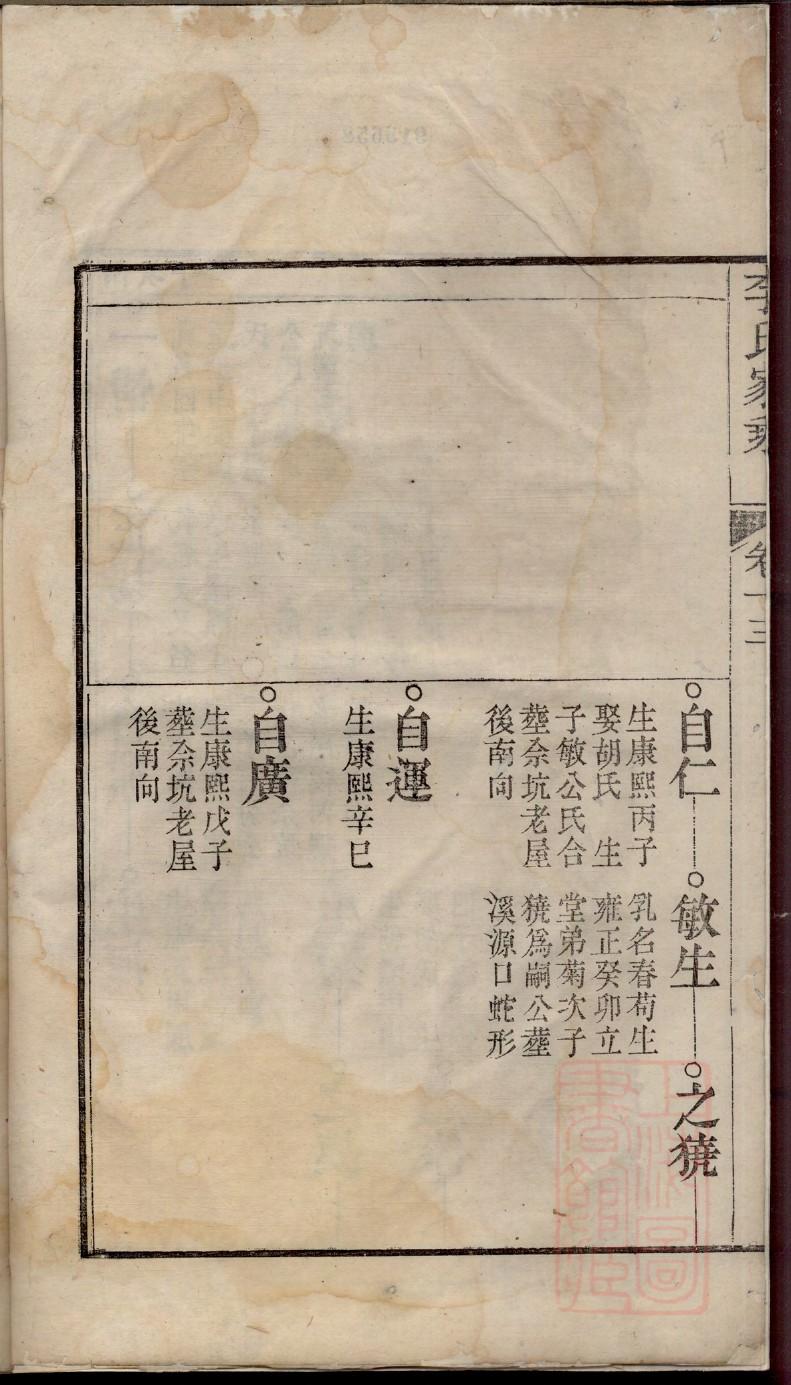 李氏家乘
卷十三
自仁
生康熙丙子
娶胡氏 生
子敏公氏合
塟佘坑老屋
後南向
敏生
乳名春荀生
雍正癸卯立
堂弟菊次子
獟爲嗣公塟
溪源口蛇形
之獟
自運
生康熙辛巳
自廣
生康熙戊子
塟佘坑老屋
後南向
上海圖書館藏